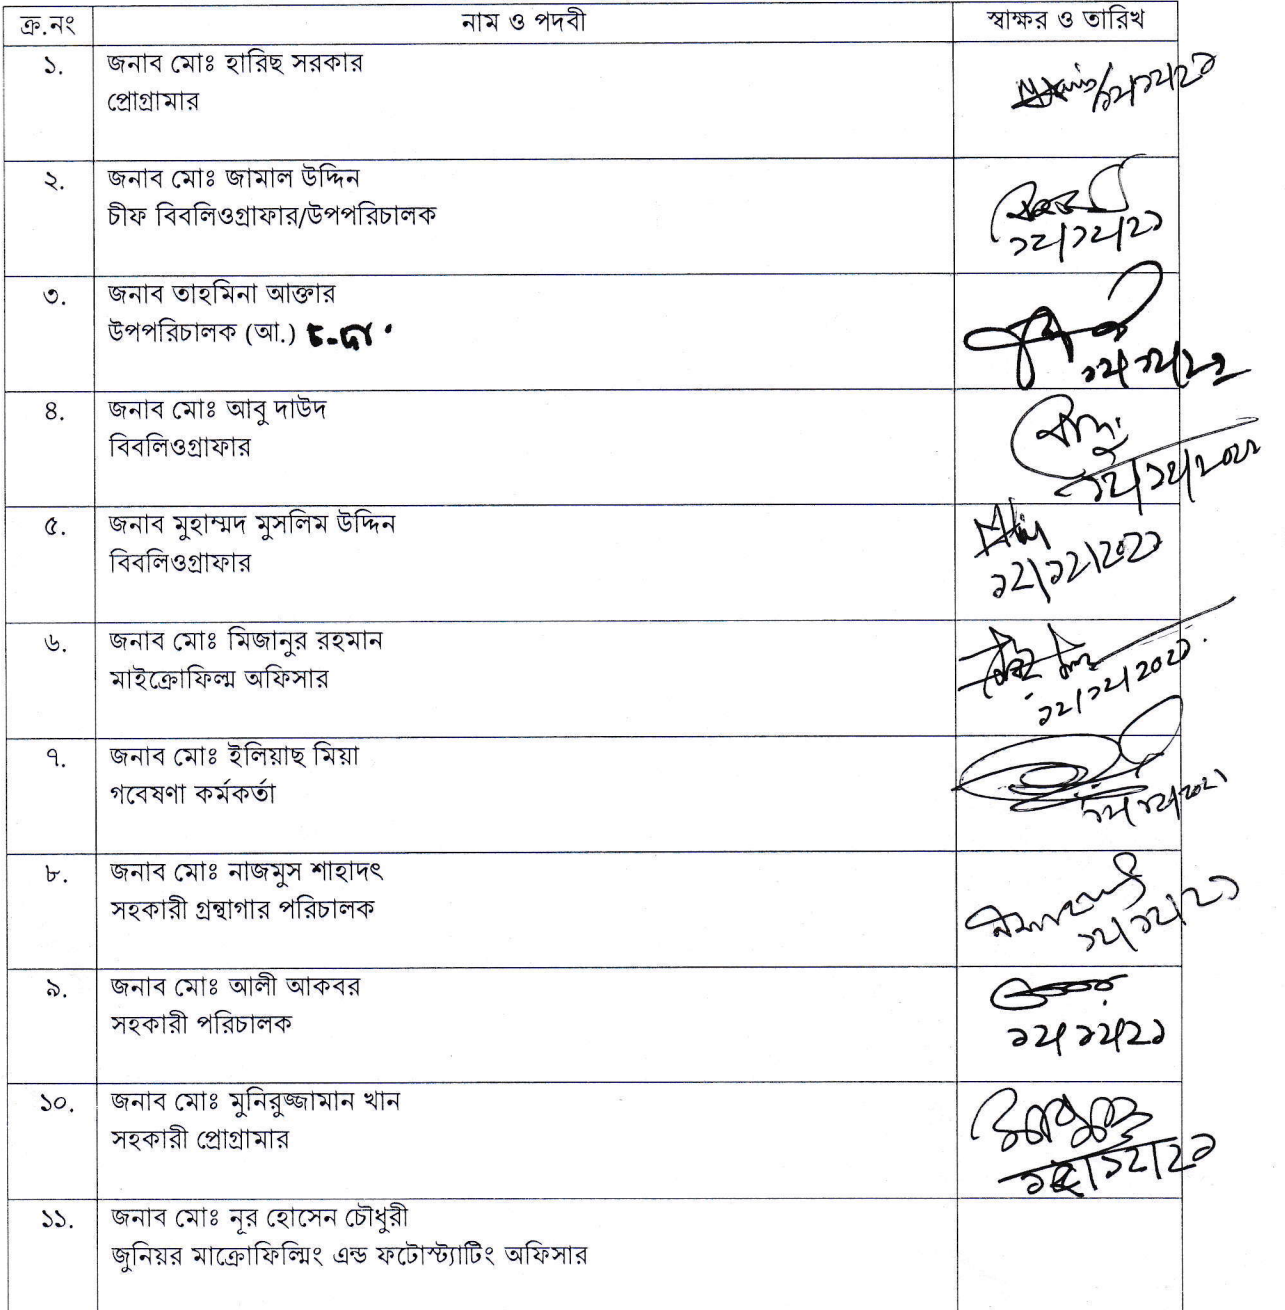 ক্র.নং নাম ও পদবী স্বাক্ষর ও তারিখ
১. জনাব মোঃ হারিছ সরকার
প্রোগ্রামার
১২/১২/২১
২. জনাব মোঃ জামাল উদ্দিন
চীফ বিবলিওগ্রাফার/উপপরিচালক
১২/১২/২১
৩. জনাব তাহমিনা আক্তার
উপপরিচালক (আ.) চ.দা.
১২/১২/২১
৪. জনাব মোঃ আবু দাউদ
বিবলিওগ্রাফার
১২/১২/২০২১
৫. জনাব মুহাম্মদ মুসলিম উদ্দিন
বিবলিওগ্রাফার
১২/১২/২০২১
৬. জনাব মোঃ মিজানুর রহমান
মাইক্রোফিল্ম অফিসার
১২/১২/২০২১
৭. জনাব মোঃ ইলিয়াছ মিয়া
গবেষণা কর্মকর্তা
১২/১২/২০২১
৮. জনাব মোঃ নাজমুস শাহাদৎ
সহকারী গ্রন্থাগার পরিচালক
১২/১২/২১
৯. জনাব মোঃ আলী আকবর
সহকারী পরিচালক
১২/১২/২১
১০. জনাব মোঃ মুনিরুজ্জামান খান
সহকারী প্রোগ্রামার
১২/১২/২১
১১. জনাব মোঃ নূর হোসেন চৌধুরী
জুনিয়র মাক্রোফিল্মিং এন্ড ফটোস্ট্যাটিং অফিসার